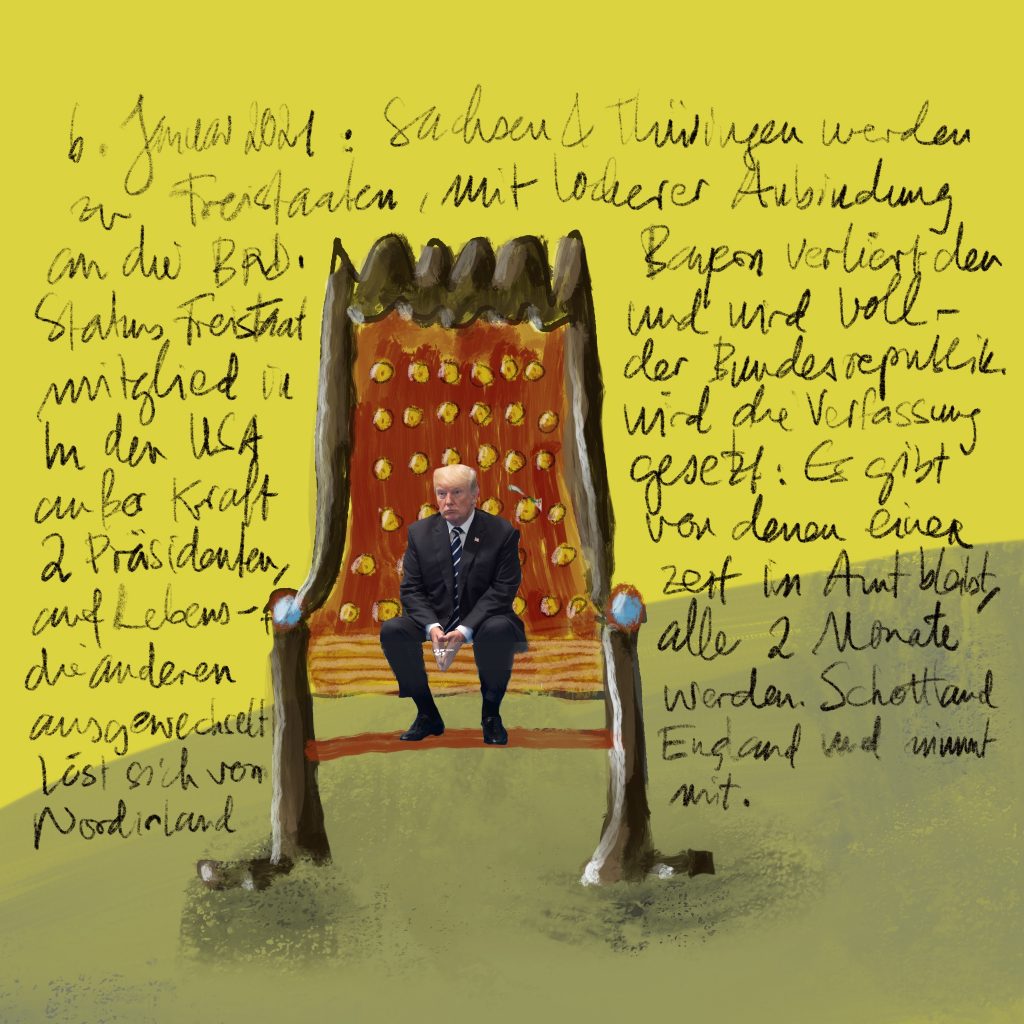 6. Januar 2021: Sachsen & Thüringen werden
zu Freistaaten, mit lockerer Anbindung
an die BRD. Bayern verliert den
Status Freistaat und wird Voll-
mitglied in der Bundesrepublik.
In den USA wird die Verfassung
außer Kraft gesetzt: Es gibt
2 Präsidenten, von denen einer
auf Lebens- zeit im Amt bleibt,
die anderen alle 2 Monate
ausgewechselt werden. Schottland
löst sich von England und nimmt
Nordirland mit.